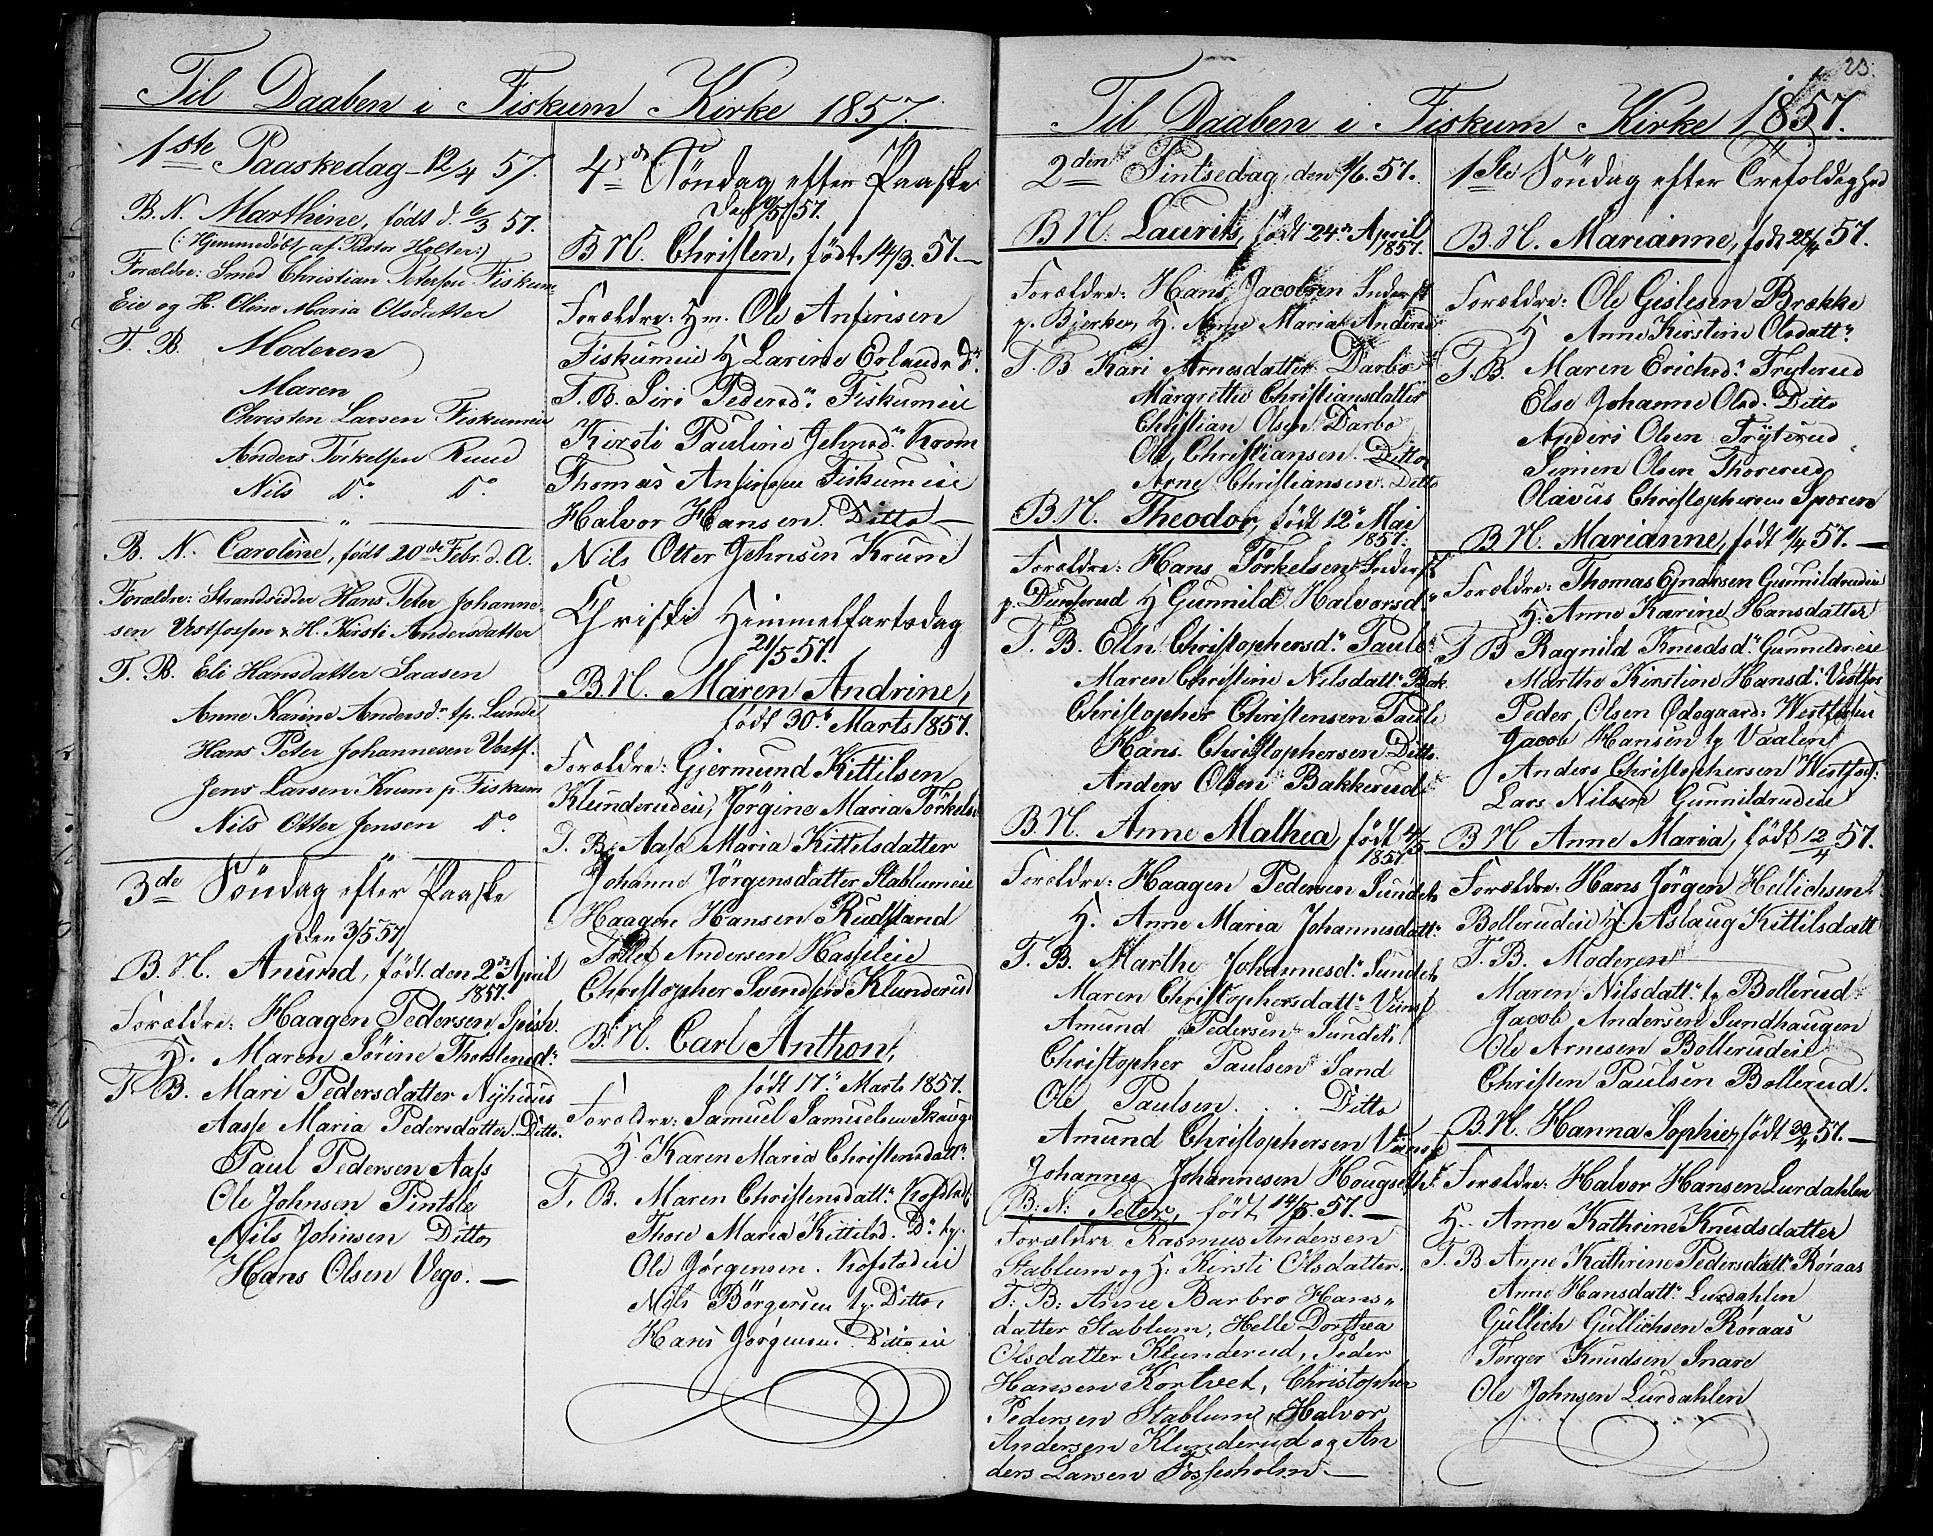 Til Daaben i Fiskum Kirke 1857.
1ste Paaskedag 12/4 57.
B. N. Marthine, født d. 6/3 57.
(: Hjemmedöbt af Pastor Holter :)
Forældre: Smed Christian Petersen Fiskum
Eie og H. Oline Maria Olsdatter
T. B. Moderen
Maren
Christen Larsen Fiskumeie
Anders Törkelsen Ruud
Nils Do. Do.
B. N. Caroline, født 20de Febr. d. A.
Forældre: Strandsidder Hans Peter Johanne-
sen Vestfossen & H. Kirsti Andersdatter
T. B. Eli Hansdatter Saasen
Anne Karine Andersdr tp. Lunde
Hans Peter Johannesen Vestf.
Jens Larsen Krum p. Fiskum
Nils Otter Jensen Do.
3de Söndag efter Paaske
den 3/5 57
B. N. Anund, født den 2den April
1857.
Forældre: Haagen Pedersen
H. Maren Sörine Thorstensdr
T. B. Mari Pedersdatter Nyhuus
Aasse Maria Pedersdatter Ditto.
Paul Pedersen Aass
Ole Johnsen Pintsle
Nils Johnsen Ditto
Hans Olsen Vego.
4de Söndag efter Paaske
Den 10/5 57.
B. N. Christen, født 14/3. 57.
Forældre: Hm. Ole Anfinsen
Fiskumeie H Larine Erlandsd.
T. B. Siri Pedersdr Fiskumeie
Kirsti Pauline Jehnsdr Krom
Thomas Anfinsen Fiskumeie
Halvor Hansen Ditto
Nils Otter Jehnsen Krum
Christi Himmelfartsdag
21/5 57.
B. N. Maren Andrine,
født 30te Marts 1857.
Forældre: Gjermund Kittilsen
Klunderudeie, Jörgine Maria Törkelsd
T. B. Aase Maria Kittelsdatter
Johanne Jörgensdatter Stablumeie
Haagen Hansen Rudstand
Tollef Andersen Hasseleie
Christopher Svendsen Klunderud
B. N. Carl Anthon,
født 17de Marts 1857.
Forældre: Samuel Samuelsen Skauge
H. Karen Maria Christensdattr
T. B. Maren Christensdattr
Thore Maria Kittilsd. Do. tp.
Ole Jörgensen. Kofstadeie
Nils Börgersen tp. Ditto,
Hans Jörgensen. Ditto eie
23.
Til Daaben i Fiskum Kirke 1857.
2den Pintsedag, den 1/6. 57.
B. N. Laurits, født 24de April
1857.
Forældre: Hans Jacobsen Inderst
p. Bjerke, H. Anne Maria Andersd
T. B Kari Arnesdatter Darbo
Margrethe Christiansdatter
Christian Olsen Darbo
Ole Christiansen. Ditto
Arne Christiansen. Ditto
B. N. Theodor, født 12te Mai
1857.
Forældre: Hans Törkelsen Inderst
p. Dunserud H Gunnild Halvorsdr
T. B. Ellen Christophersdr Taule
Maren Christine Nilsdattr Bak.
Christopher Christensen Taule
Hans Christophersen Ditto
Anders Olsen Bakkerud
B. N. Anne Mathea, født 4/5
1857
Forældre: Haagen Pedersen Sundet
H. Anne Maria Johannesdattr
T. B. Marthe Johannesdr Sundet
Maren Christophersdattr
Amund Pedersen Sundet,
Christopher Paulsen Sand
Ole Paulsen. . . Ditto
Amund Christophersen
Johannes Johannesen
B: N: Peter, født 14/5. 57.
Forældre Rasmus Andersen
Stablum og H. Kirsti Olsdatter.
T: B: Anne Barbro Hans-
datter Stablum, Helle Dorthea
Olsdatter Klunderud, Peder
Hansen Kortvet, Christopher
Pedersen Stablum, Halvor
Andersen Klunderud og An
ders Larsen Fossesholm.
1ste Söndag efter Trefoldighed
B. N. Marianne, født 28/4 57.
Forældre: Ole Gislesen Brække
H Anne Kirstine Olsdattr
T. B. Maren Erichsdr Tryterud
Else Johanne Olsd. Ditto
Anders Olsen Tryterud
Simen Olsen Thorerud
Olavus Christophersen
B. N. Marianne, født 1/4 57.
Forældre: Thomas Ejnarsen Gunnildrudeie
H. Anne Karine Hansdatter
T B Ragnild Knudsdr Gunnildrudeie
Marthe Kirstine Hansdr Vestfos
Peder Olsen Ødegaard
Jacob Hansen tp Vaalen
Anders Christophersen Westfos.
Lars Nilsen Gunnildrudeie
B N Anne Maria, født 12/4 57.
Forældre: Hans Jörgen Hellichsen
Bollerudeie H. Aslaug Kittilsdatt
T. B. Moderen
Maren Nilsdattr tp Bollerud
Jacob Andersen Sundhaugen
Ole Arnesen Bollerudeie
Christen Paulsen Bollerud.
B. N. Hanna Sophie, født 30/4 57.
Forældre: Halvor Hansen Lurdahlen
H. Anne Kathrine Knudsdatter
T. B. Anne Kathrine Pedersdattr Røraas
Anne Hansdattr Lurdahlen
Gullich Gullichsen Røraas
Torger Knudsen Snare
Ole Johnsen Lurdahlen